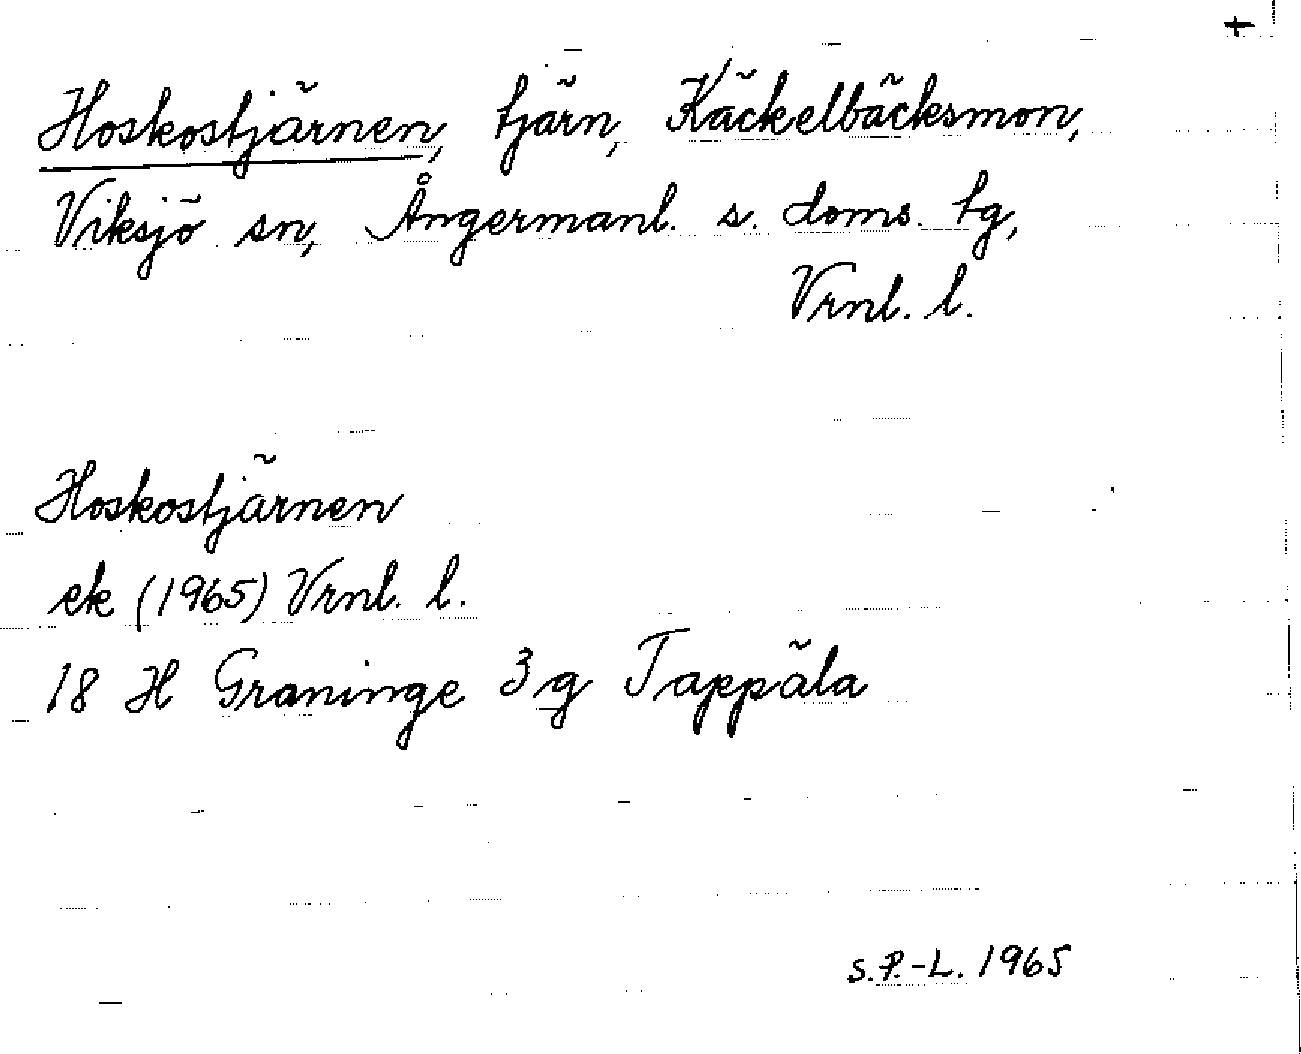 +
Hoskostjärnen, tjärn, Käckelbäcksmon,
Viksjö sn, Ångermanl. s. doms. tg,
Vrnl. l.
Hoskostjärnen
ek (1965) Vrnl. l.
18 H Graninge 3g Tappäla
S.P.-L. 1965